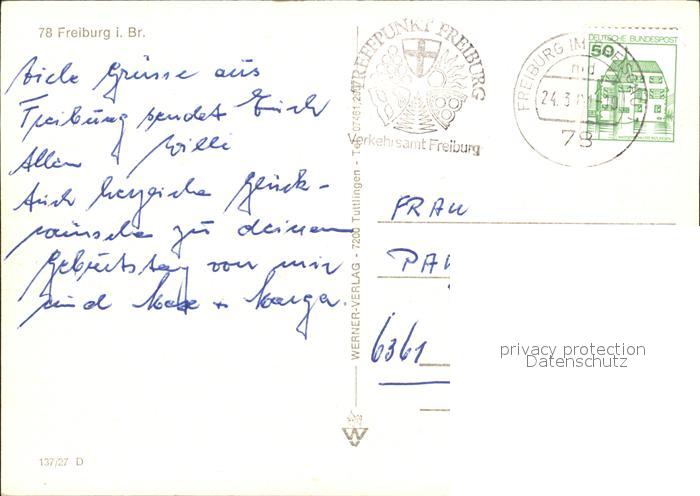 78 Freiburg i. Br.
Viele Grüsse aus
Freiburg sendet Euch
Allen Willi
Auch herzliche Glück-
wünsche zu deinem
Geburtstag von mir
und Max + Marga.
TREFFPUNKT FREIBURG
Verkehrsamt Freiburg
FREIBURG IM BREISGAU 1
24.3.
78
DEUTSCHE BUNDESPOST
50
WERNER-VERLAG - 7200 Tuttlingen - Tel.
FRAU
6361
privacy protection
Datenschutz
W
137/27 D